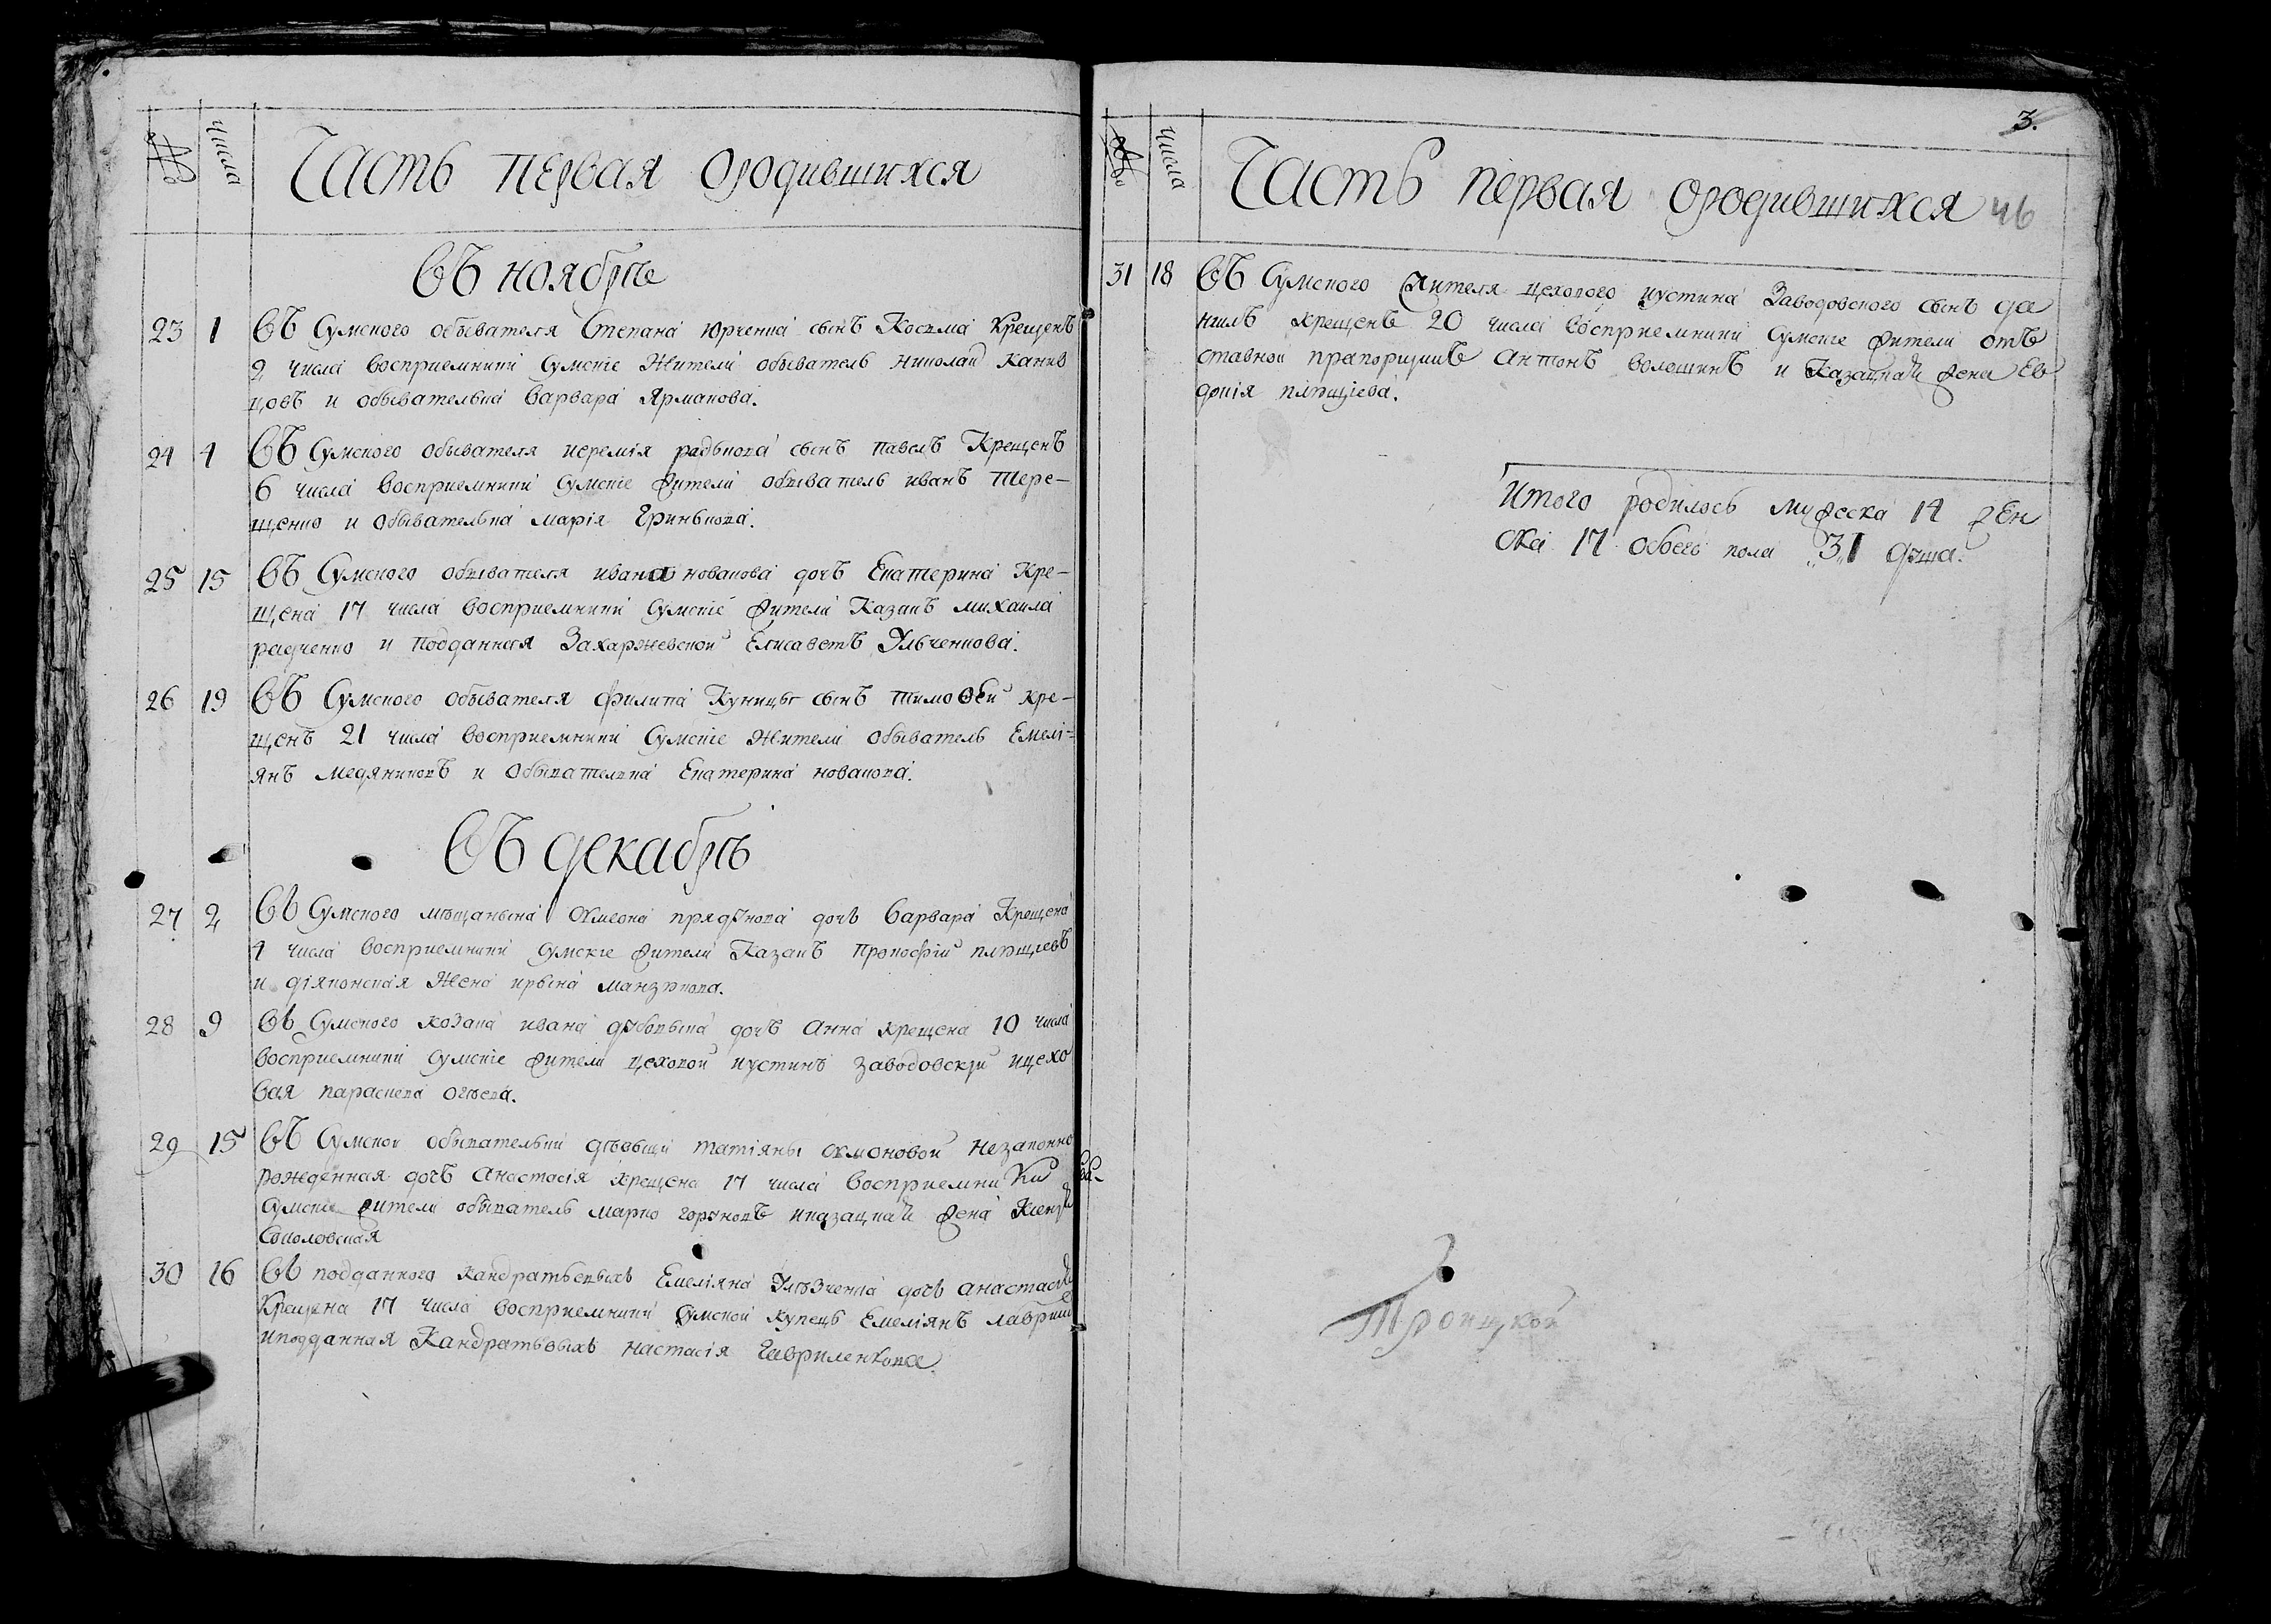 № числа Часть первая ородившихся
Въ ноябрѣ
23 1 Въ Сумского обывателя Степана Юрченка сынъ Косма Крещенъ
2 числа восприемники Сумские Жители обыватель николай канив
цовъ и обывателька Варвара Ярмакова.
24 4 Въ Сумского обывателя иеремія радькова сынъ павелъ Крещенъ
6 числа восприемники Сумские жители обыватель иванъ тере-
щенко и обывателька марія Гринькова.
25 15 Въ Сумского обывателя ивана новакова дочъ Екатерина Кре-
щена 17 числа восприемники Сумскіе жители Казакъ михаила
радченко и подданная Захаржевской Елисаветъ Ульченкова.
26 19 Въ Сумского обывателя филипа Куницы сынъ тимоѳей кре-
щенъ 21 числа восприемники Сумские Жители обыватель Емелі-
янъ медяниковъ и обывателька Екатерина новакова.
Въ декабрѣ
27 2 Въ Сумского мѣщанина Симеона прядкова дочъ Варвара Крещена
4 числа восприемники сумские жители Казакъ прокофій плѣщіевъ
и діяконская Жена ирина
28 9 Въ Сумского козака ивана дочъ Анна крещена 10 числа
восприемники сумские жители цеховой иустинъ заводовскій ицехо
вая параскева
29 15 Въ Сумской обывательки дѣвыци татіяны незаконно
рожденная дочъ Анастасія крещена 17 числа восприемники
Сумские жители обыватель марко иказацкая жена
Соколовская
30 16 Въ подданного кандратьевыхъ Емеліяна дочъ анастасія
Крещена 17 числа восприемники Сумской купецъ Емеліянъ
иподданная Кандратьевыхъ настасія Гавриленкова.
3.
№ числа Часть первая ородившихся 46
31 18 Въ Сумского жителя цехового иустина Заводовского сынъ да
нилъ крещенъ 20 числа восприемники Сумские жители отъ
ставной прапорщикъ Антонъ волошинъ и Казацкая жена Ев
докія плѣщіева.
Итого родилось мужеска 14 жен
ска 17 обоего пола 31 душа.
Троицкой